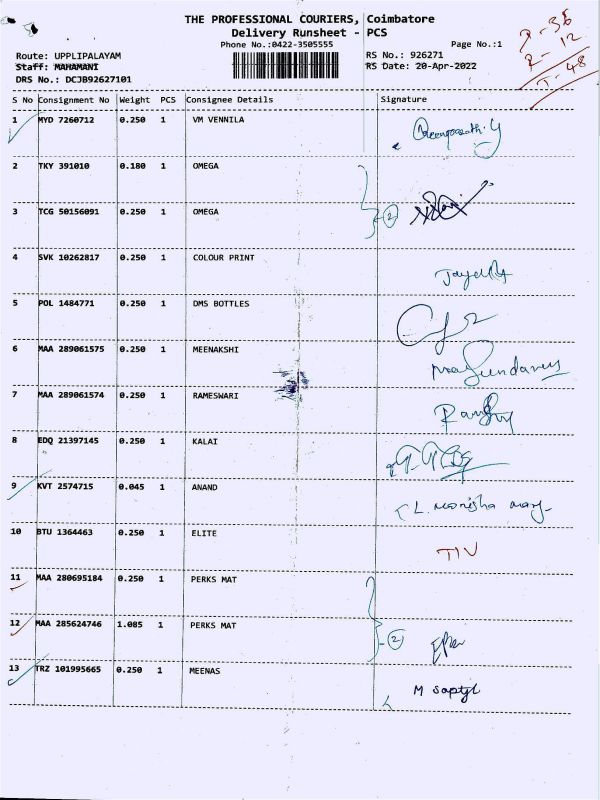 THE PROFESSIONAL COURIERS, Coimbatore
Delivery Runsheet - PCS
Phone No.:0422-3505555
Page No.:1
Route: UPPLIPALAYAM
RS No.: 926271
Staff: MAHAMANI
RS Date: 20-Apr-2022
DRS No.: DCJB92627101
36
12
T-48
S No Consignment No Weight PCS Consignee Details Signature
1 MYD 7260712 0.250 1 VM VENNILA
2 TKY 391010 0.180 1 OMEGA
3 TCG 50156091 0.250 1 OMEGA
2
4 SVK 10262817 0.250 1 COLOUR PRINT
5 POL 1484771 0.250 1 DMS BOTTLES
6 MAA 289061575 0.250 1 MEENAKSHI
7 MAA 289061574 0.250 1 RAMESWARI
8 EDQ 21397145 0.250 1 KALAI
9 KVT 2574715 0.045 1 ANAND
L. Monisha mary
10 BTU 1364463 0.250 1 ELITE
TIV
11 MAA 280695184 0.250 1 PERKS MAT
12 MAA 285624746 1.085 1 PERKS MAT
2
13 TRZ 101995665 0.250 1 MEENAS
M